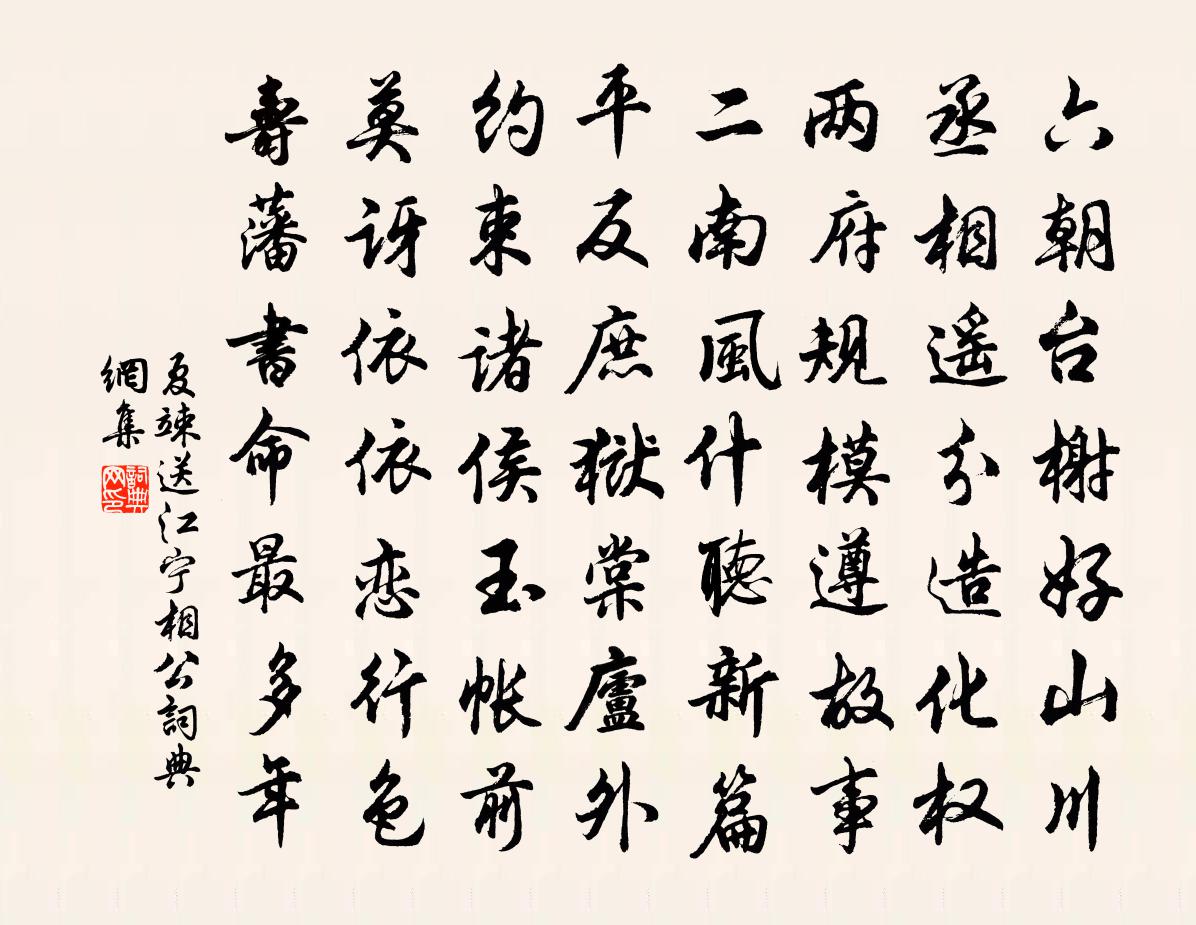 六朝台榭好山川
丞相遥分造化权
两府规模遵故事
二南風什聽新篇
平反庶獄棠廬外
约束諸侯玉帐前
莫讶依依恋行色
壽藩書命最多年
夏竦送江宁相公詞典
網集
詞典网印